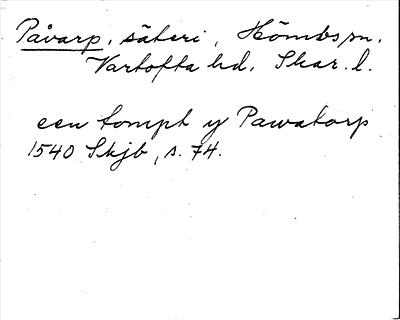 Påvarp, säteri, Hömbs sn.
Vartofta hd. Skar. l.
een tompt y Pawatorp
1540 Skjb, s. 74.